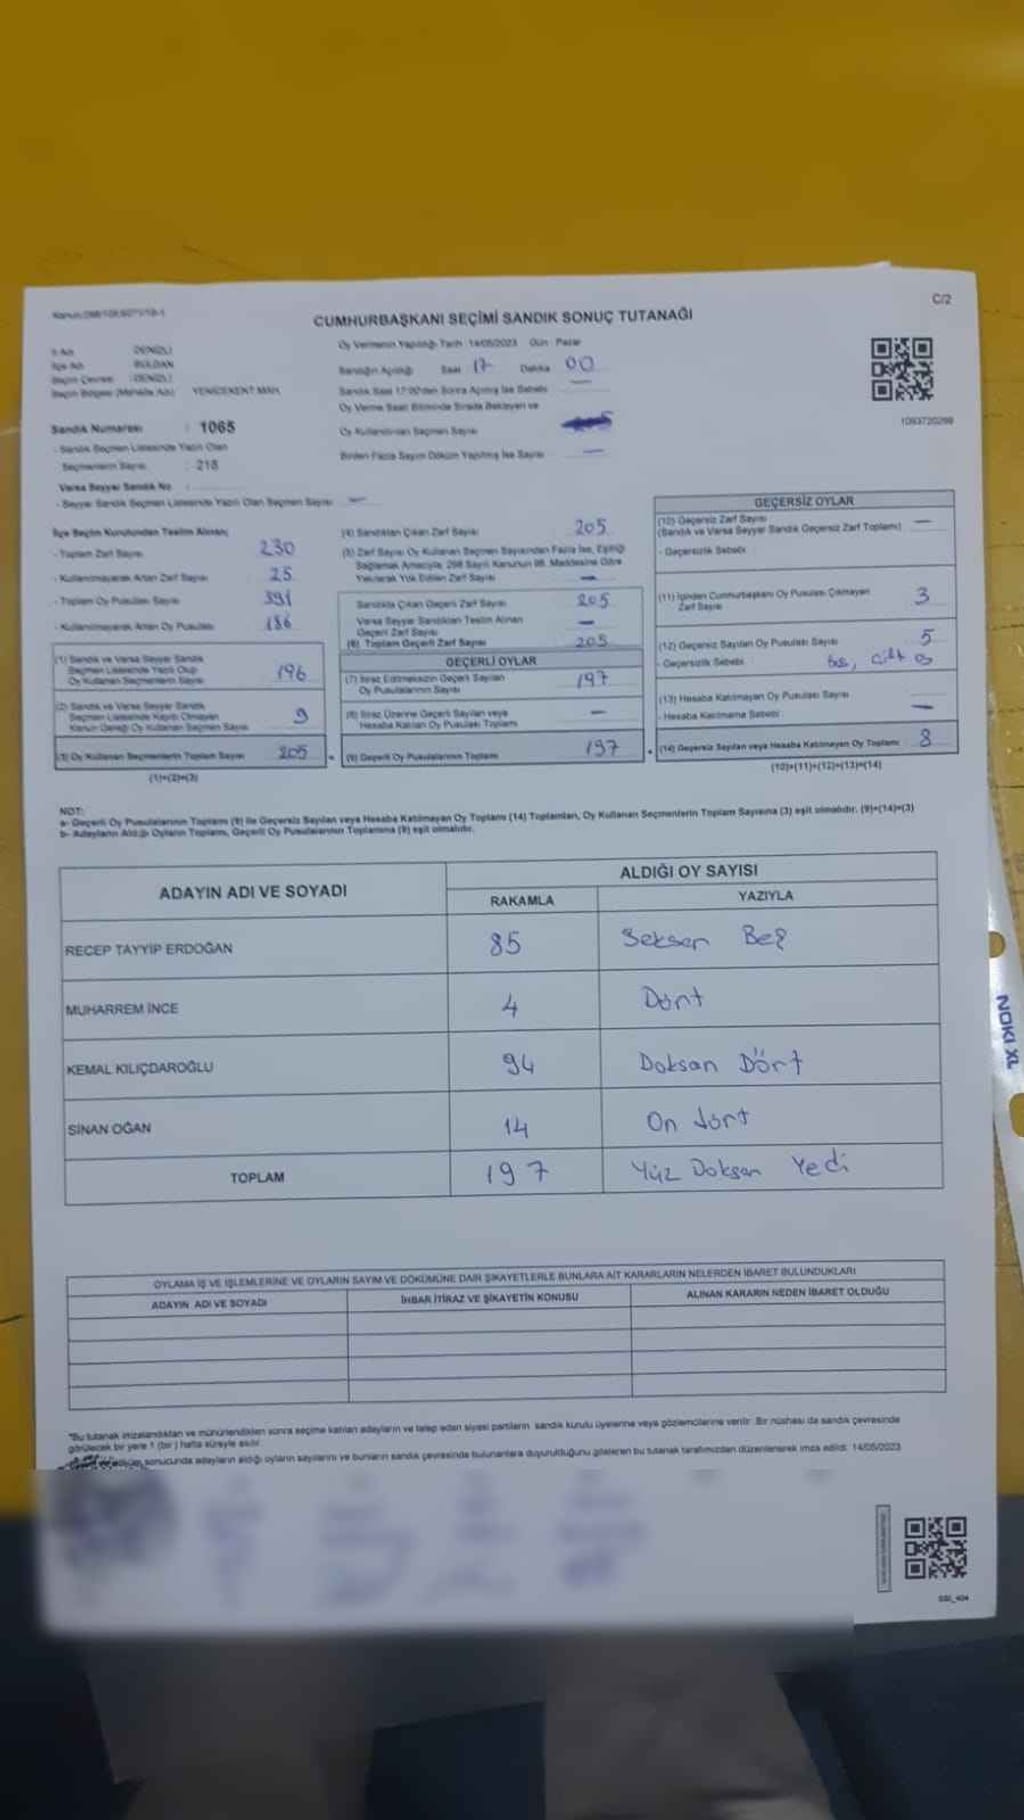 C/2
CUMHURBAŞKANI SEÇİMİ SANDIK SONUÇ TUTANAĞI
Oy Vermenin Yapıldığı Tarih 14/05/2023 Gün Pazar
İl Adı DENİZLİ
İlçe Adı BULDAN
Seçim Çevresi DENİZLİ
Seçim Bölgesi (Mahalle Adı) YENİCEKENT MAH.
Sandığın Açıldığı Saat 17 Dakika 00
Sandık Saat 17:00'den Sonra Açılmış İse Sebebi —
Oy Verme Saati Bitiminde Sırada Bekleyen ve
Oy Kullandırılan Seçmen Sayısı
Birden Fazla Sayım Döküm Yapılmış İse Sayısı —
1093720299
Sandık Numarası : 1065
- Sandık Seçmen Listesinde Yazılı Olan
Seçmenlerin Sayısı : 218
Varsa Seyyar Sandık No
- Seyyar Sandık Seçmen Listesinde Yazılı Olan Seçmen Sayısı —
İlçe Seçim Kurulundan Teslim Alınan;
- Toplam Zarf Sayısı 230
- Kullanılmayarak Artan Zarf Sayısı 25
- Toplam Oy Pusulası Sayısı 391
- Kullanılmayarak Artan Oy Pusulası 186
(1) Sandık ve Varsa Seyyar Sandık
Seçmen Listesinde Yazılı Olup
Oy Kullanan Seçmenlerin Sayısı 196
(2) Sandık ve Varsa Seyyar Sandık
Seçmen Listesinde Kayıtlı Olmayan
Kanun Gereği Oy Kullanan Seçmen Sayısı 9
(3) Oy Kullanan Seçmenlerin Toplam Sayısı 205
(1)+(2)=(3)
(4) Sandıktan Çıkan Zarf Sayısı 205
(5) Zarf Sayısı Oy Kullanan Seçmen Sayısından Fazla İse, Eşitliği
Sağlamak Amacıyla, 298 Sayılı Kanunun 98. Maddesine Göre
Yakılarak Yok Edilen Zarf Sayısı —
Sandıkta Çıkan Geçerli Zarf Sayısı 205
Varsa Seyyar Sandıktan Teslim Alınan
Geçerli Zarf Sayısı —
(6) Toplam Geçerli Zarf Sayısı 205
GEÇERLİ OYLAR
(7) İtiraz Edilmeksizin Geçerli Sayılan
Oy Pusulalarının Sayısı 197
(8) İtiraz Üzerine Geçerli Sayılan veya
Hesaba Katılan Oy Pusulası Toplamı —
(9) Geçerli Oy Pusulalarının Toplamı 197
GEÇERSİZ OYLAR
(10) Geçersiz Zarf Sayısı —
(Sandık ve Varsa Seyyar Sandık Geçersiz Zarf Toplamı)
- Geçersizlik Sebebi
(11) İçinden Cumhurbaşkanı Oy Pusulası Çıkmayan
Zarf Sayısı 3
(12) Geçersiz Sayılan Oy Pusulası Sayısı 5
- Geçersizlik Sebebi
(13) Hesaba Katılmayan Oy Pusulası Sayısı —
- Hesaba Katılmama Sebebi
(14) Geçersiz Sayılan veya Hesaba Katılmayan Oy Toplamı 8
(10)+(11)+(12)+(13)=(14)
NOT:
a- Geçerli Oy Pusulalarının Toplamı (9) ile Geçersiz Sayılan veya Hesaba Katılmayan Oy Toplamı (14) Toplamları, Oy Kullanan Seçmenlerin Toplam Sayısına (3) eşit olmalıdır. (9)+(14)=(3)
b- Adayların Aldığı Oyların Toplamı, Geçerli Oy Pusulalarının Toplamına (9) eşit olmalıdır.
ADAYIN ADI VE SOYADI
ALDIĞI OY SAYISI
RAKAMLA YAZIYLA
RECEP TAYYİP ERDOĞAN 85 Seksen Beş
MUHARREM İNCE 4 Dört
KEMAL KILIÇDAROĞLU 94 Doksan Dört
SİNAN OĞAN 14 On dört
TOPLAM 197 Yüz Doksan Yedi
OYLAMA İŞ VE İŞLEMLERİNE VE OYLARIN SAYIM VE DÖKÜMÜNE DAİR ŞİKAYETLERLE BUNLARA AİT KARARLARIN NELERDEN İBARET BULUNDUKLARI
ADAYIN ADI VE SOYADI İHBAR İTİRAZ VE ŞİKAYETİN KONUSU ALINAN KARARIN NEDEN İBARET OLDUĞU
"Bu tutanak imzalandıktan ve mühürlendikten sonra seçime katılan adayların ve talep eden siyasi partilerin sandık kurulu üyelerine veya gözlemcilerine verilir. Bir nüshası da sandık çevresinde
görülecek bir yere 1 (bir) hafta süreyle asılır.
sonucunda adayların aldığı oyların sayılarını ve bunların sandık çevresinde bulunanlara duyurulduğunu gösteren bu tutanak tarafımızdan düzenlenerek imza edildi. 14/05/2023
NOKI XL